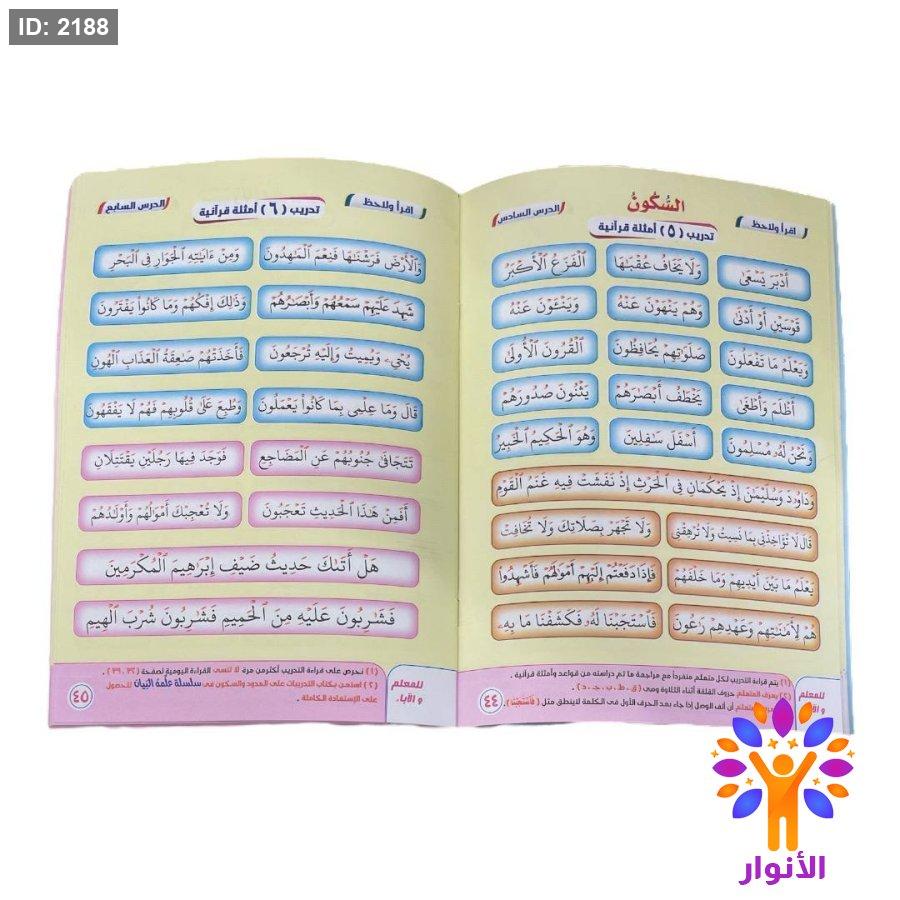 ID: 2188
السُّكُونُ
اقرأ ولاحظ
تدريب (٥) أمثلة قرآنية
الدرس السادس
أَدْبَرَ يَسْعَىٰ
وَلَا يَخَافُ عُقْبَٰهَا
ٱلْفَزَعُ ٱلْأَكْبَرُ
قَوْسَيْنِ أَوْ أَدْنَىٰ
وَهُمْ يَنْهَوْنَ عَنْهُ
وَيَنْـَٔوْنَ عَنْهُ
وَيَعْلَمُ مَا تَفْعَلُونَ
صَلَوَٰتِهِمْ يُحَافِظُونَ
ٱلْقُرُونَ ٱلْأُولَىٰ
أَظْلَمَ وَأَطْغَىٰ
يَخْطَفُ أَبْصَٰرَهُمْ
يَثْنُونَ صُدُورَهُمْ
وَنَحْنُ لَهُۥ مُسْلِمُونَ
أَسْفَلَ سَٰفِلِينَ
وَهُوَ ٱلْحَكِيمُ ٱلْخَبِيرُ
وَدَاوُۥدَ وَسُلَيْمَٰنَ إِذْ يَحْكُمَانِ فِى ٱلْحَرْثِ إِذْ نَفَشَتْ فِيهِ غَنَمُ ٱلْقَوْمِ
قَالَ لَا تُؤَاخِذْنِى بِمَا نَسِيتُ وَلَا تُرْهِقْنِى
وَلَا تَجْهَرْ بِصَلَاتِكَ وَلَا تُخَافِتْ
يَعْلَمُ مَا بَيْنَ أَيْدِيهِمْ وَمَا خَلْفَهُمْ
فَإِذَا دَفَعْتُمْ إِلَيْهِمْ أَمْوَٰلَهُمْ فَأَشْهِدُوا۟
هُمْ لِأَمَٰنَٰتِهِمْ وَعَهْدِهِمْ رَٰعُونَ
فَٱسْتَجَبْنَا لَهُۥ فَكَشَفْنَا مَا بِهِۦ
للمعلم
(١) يتم قراءة التدريب لكل متعلم منفرداً مع مراجعة ما تم دراسته من قواعد وأمثلة قرآنية .
(٢) يعرف المتعلم حروف القلقلة أثناء التلاوة وهي (ق ، ط ، ب ، ج ، د) .
المتعلم أن ألف الوصل إذا جاء بعد الحرف الأول في الكلمة لا ينطق مثل (فَٱسْتَجَبْنَا) .
٤٤
اقرأ ولاحظ
تدريب (٦) أمثلة قرآنية
الدرس السابع
وَٱلْأَرْضَ فَرَشْنَٰهَا فَنِعْمَ ٱلْمَٰهِدُونَ
وَمِنْ ءَايَٰتِهِ ٱلْجَوَارِ فِى ٱلْبَحْرِ
شَهِدَ عَلَيْهِمْ سَمْعُهُمْ وَأَبْصَٰرُهُمْ
وَذَٰلِكَ إِفْكُهُمْ وَمَا كَانُوا۟ يَفْتَرُونَ
يُحْىِۦ وَيُمِيتُ وَإِلَيْهِ تُرْجَعُونَ
فَأَخَذَتْهُمْ صَٰعِقَةُ ٱلْعَذَابِ ٱلْهُونِ
قَالَ وَمَا عِلْمِى بِمَا كَانُوا۟ يَعْمَلُونَ
وَطُبِعَ عَلَىٰ قُلُوبِهِمْ فَهُمْ لَا يَفْقَهُونَ
تَتَجَافَىٰ جُنُوبُهُمْ عَنِ ٱلْمَضَاجِعِ
فَوَجَدَ فِيهَا رَجُلَيْنِ يَقْتَتِلَانِ
أَفَمِنْ هَٰذَا ٱلْحَدِيثِ تَعْجَبُونَ
وَلَا تُعْجِبْكَ أَمْوَٰلُهُمْ وَأَوْلَٰدُهُمْ
هَلْ أَتَىٰكَ حَدِيثُ ضَيْفِ إِبْرَٰهِيمَ ٱلْمُكْرَمِينَ
فَشَٰرِبُونَ عَلَيْهِ مِنَ ٱلْحَمِيمِ فَشَٰرِبُونَ شُرْبَ ٱلْهِيمِ
للمعلم و الآباء
(١) نحرص على قراءة التدريب أكثر من مرة. لا تنسى القراءة اليومية لصفحة (٣٢ ، ٣٩) .
(٢) استعن بكتاب التدريبات على المدود والسكون في سلسلة علمه البيان للحصول
على الإستفادة الكاملة .
٤٥
الأنوار